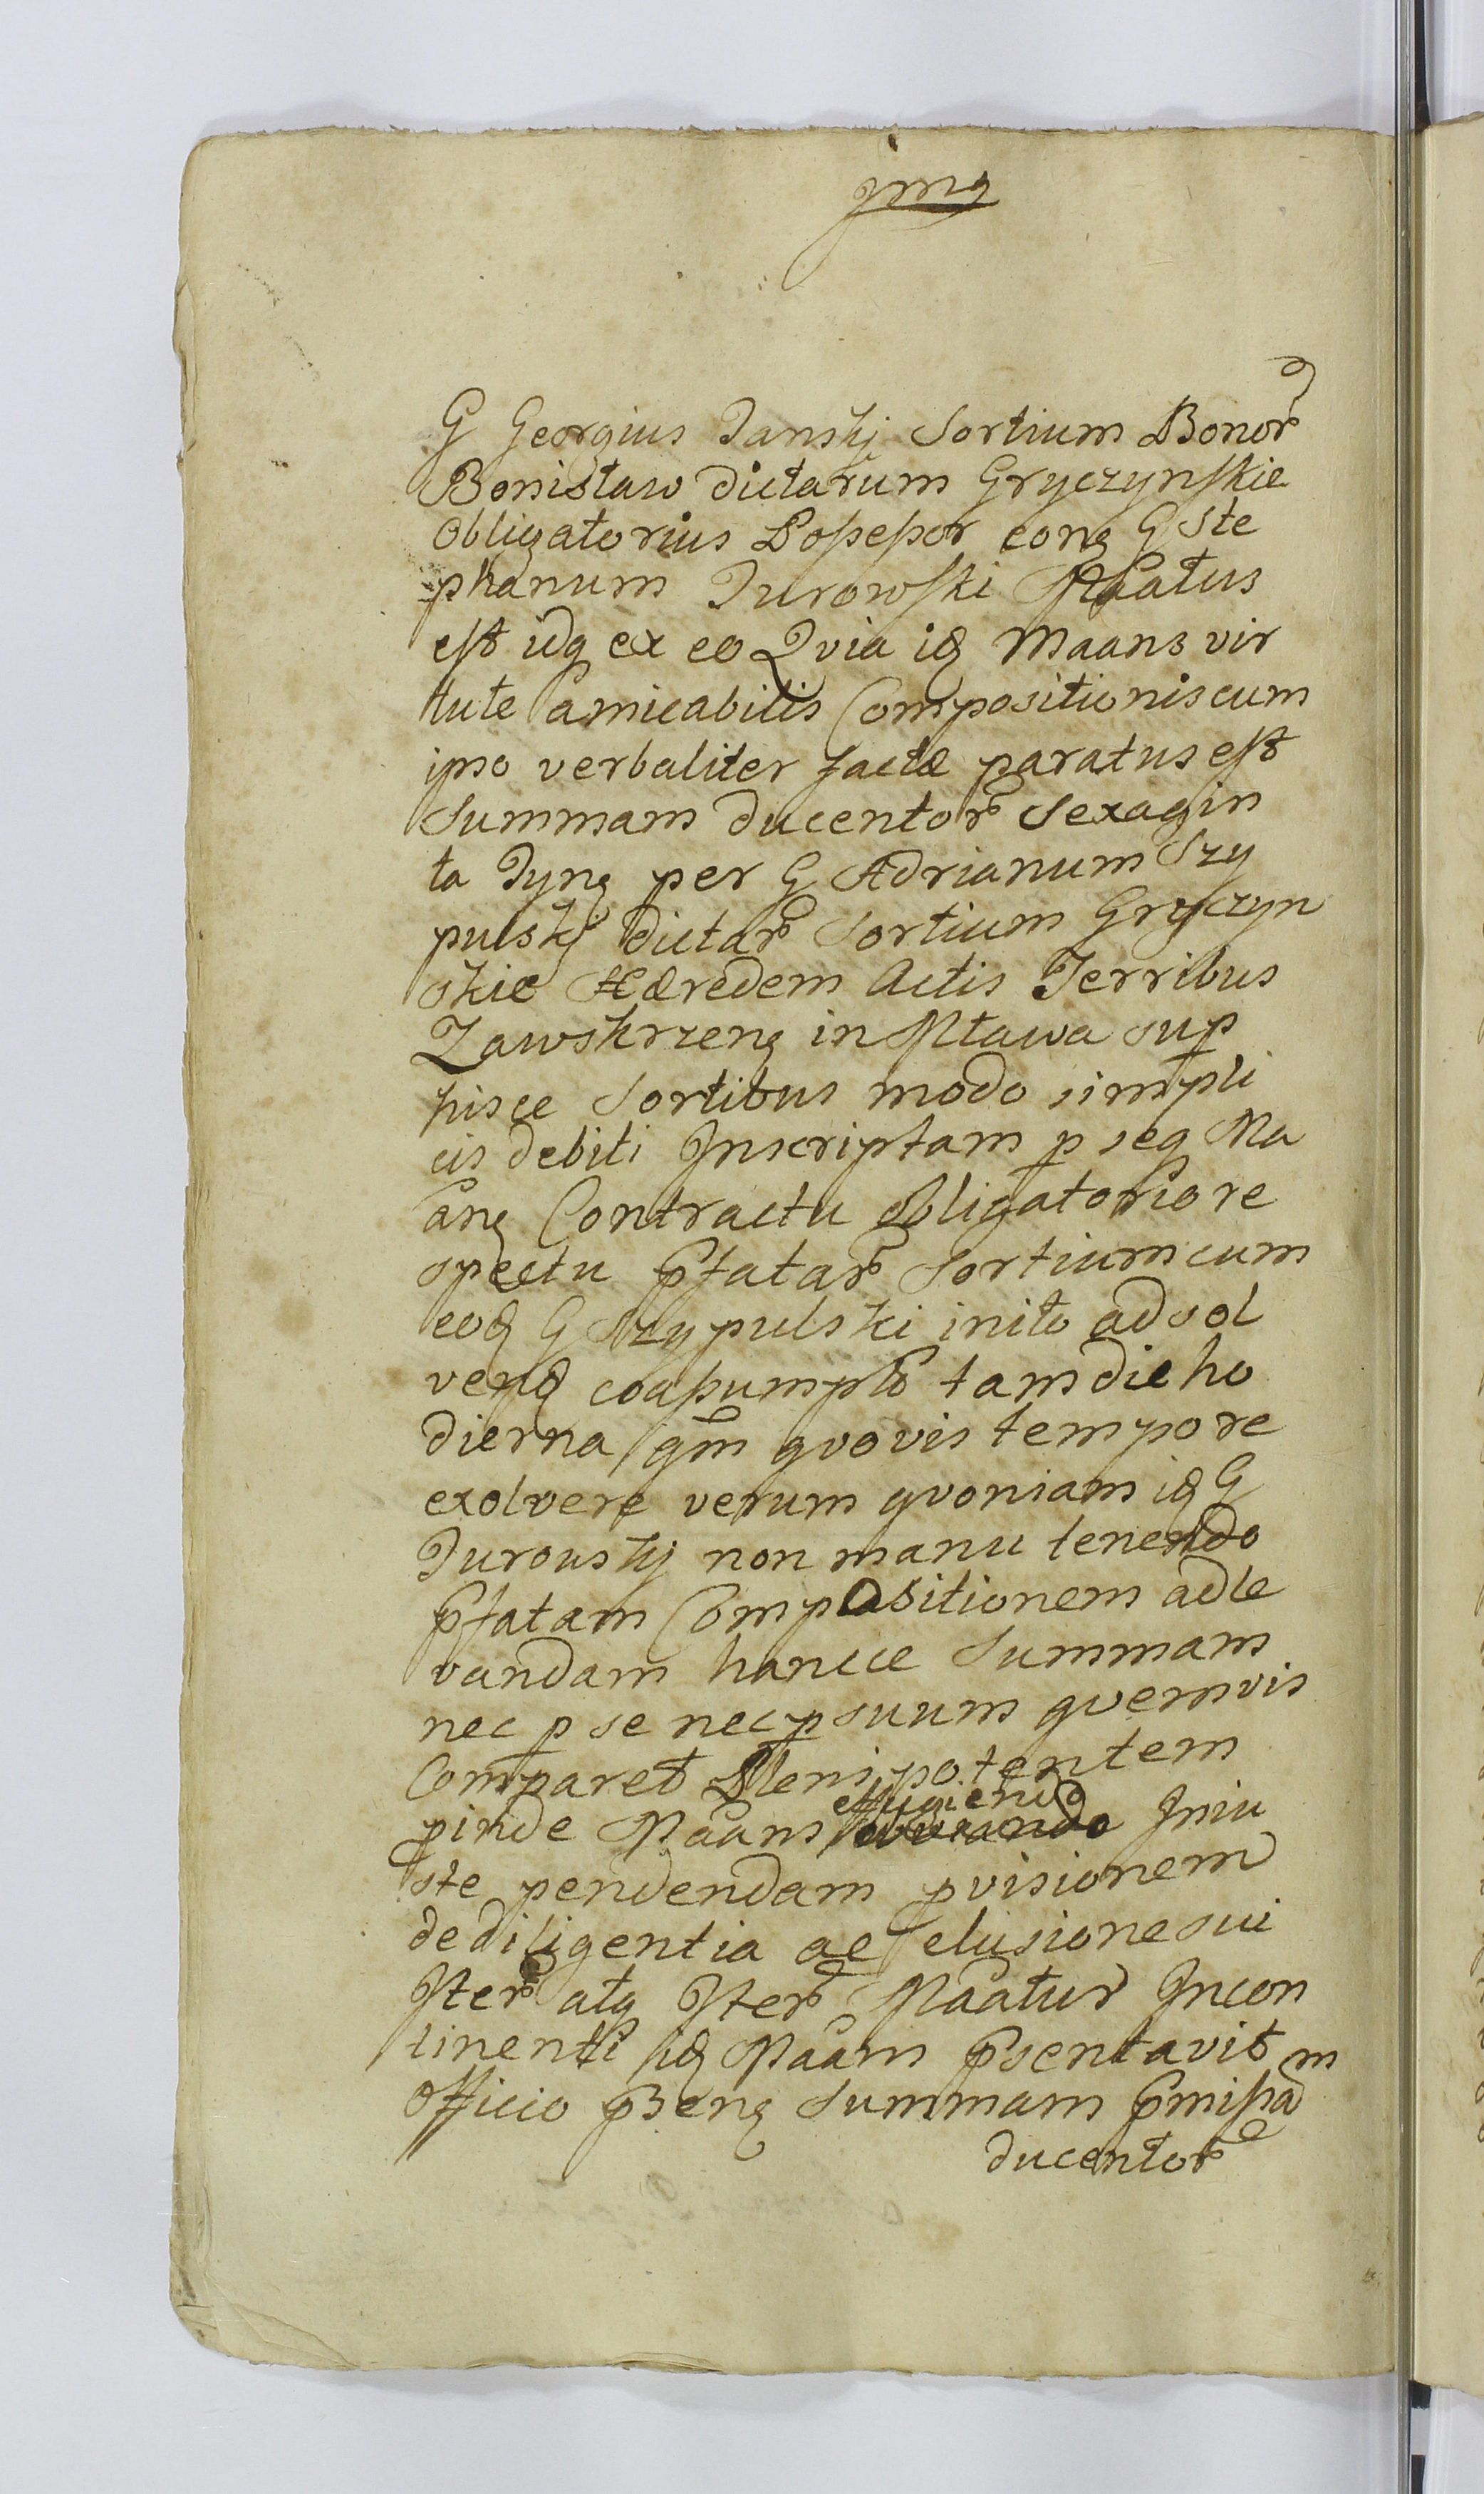 G Georgius Janskj Sortium Bonor
Bonisław dictarum Gryczynskie
Obligatorius Possessor conq G Ste
phanum Turowski Maatus
est idq ex eo Qvia iq Maans vir
tute amicabilis Compositionis cum
ipso verbaliter factæ paratus est
Summam ducentor Sexagin
ta Tynq per G Adrianum Szy
pulskj dictar Sortium Gryczyn
skie Hæredem Actis Terribus
Zawskrzenq in Mława sup
hisce Sortibus modo simpli
cis debiti Inscriptam p seq Ma
anq Contractu Obligatorio re
spectu pfatar Sortium cum
eoq G Szypulski inito ad sol
venq coassumpto tam die ho
dierna qm qvovis tempore
exolvere verum qvoniam iq G
Turouskj non manu tenendo
pfatam Compositionem ad le
vandam hancce Summam
nec p se nec p suum qvemvis
Comparet Plenipotentem
pinde Maans effugiendo Iniu
ste pendendam pvisionem
de diligentia ac elusione sui
Iter atq Iter Maatur Incon
tinenti iq Maam psentavit
Officio psenq Summam pmissam
ducentor